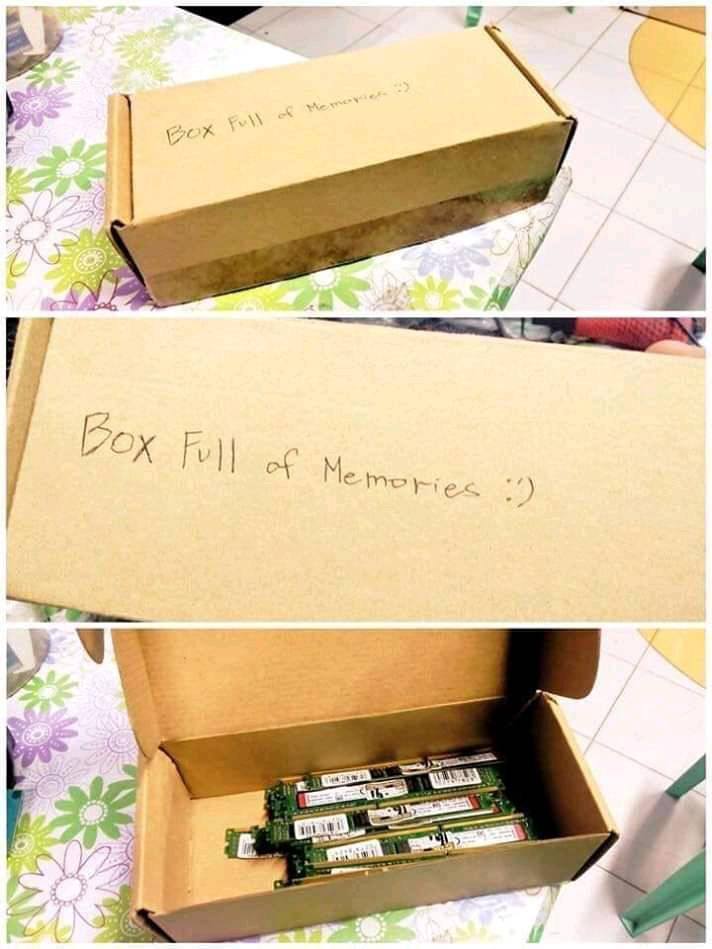 Box Full of Memories :')
Box Full of Memories :')